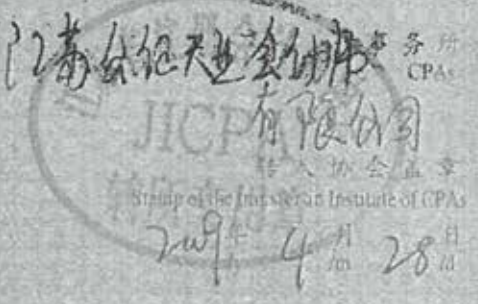 江苏公证天业会计师事务所
CPAs
有限公司
JICPA
转入协会盖章
Stamp of the transfer-in Institute of CPAs
2009年 4月 28日
/y /m /d